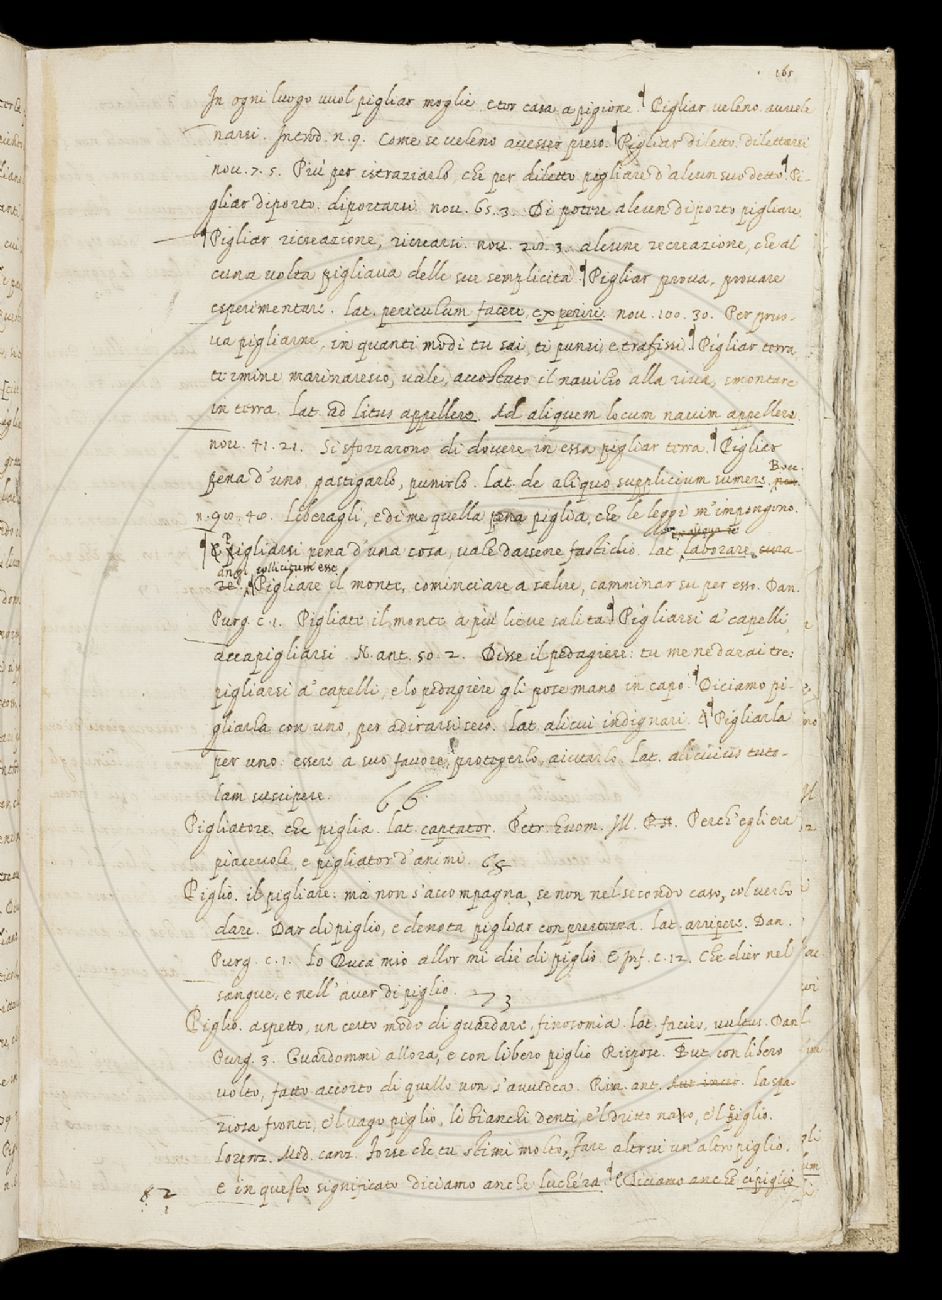 165
In ogni luogo vuol pigliar moglie, e tor casa a pigione. Pigliar veleno. avvele
narsi. Introd. n. 9. Come se veleno avesser preso. Pigliar diletto. dilettarsi
nov. 7. 5. Più per istraziarlo, che per diletto pigliare d'alcun suo detto. Pi-
gliar diporto. diportarsi. nov. 65. 3. Di potere alcun diporto pigliare.
Pigliar ricreazione, ricrearsi. nov. 20. 3. alcune recreazione, che al
cuna volta pigliava delle sue semplicità. Pigliar prova, provare
esperimentare. lat. periculum facere, experiri. nov. 100. 30. Per pruo-
va pigliarne, in quanti modi tu sai, ti punsi, e trafissi. Pigliar terra
termine marinaresco, vale, accostato il navilio alla riva, smontare
in terra. lat. ad litus appellere. Ad aliquem locum navim appellere.
nov. 41. 21. Si sforzarono di dovere in essa pigliar terra. Pigliar
pena d'uno, gastigarlo, punirlo. lat. de aliquo supplicium sumere. Bocc.
n. 98. 40. Liberagli, e di me quella pena piglia, che le leggi m'impongono.
Pigliarsi pena d'una cosa, vale darsene fastidio. lat. laborare, cura-
angi, sollicitum esse
re. Pigliare il monte, cominciare a salire, camminar su per esso. Dan.
Purg. c. 1. Pigliate il monte a più lieve salita. Pigliarsi a' capelli,
accapigliarsi. N. ant. 50. 2. Disse il pedagiere: tu me ne darai tre:
pigliarsi a' capelli, e lo pedagiere gli pose mano in capo. Diciamo pi-
gliarla con uno, per adirarsi seco. lat. alicui indignari. Pigliarla
per uno: essere a suo favore, proteggerlo, aiutarlo. lat. alicuius tute-
lam suscipere.
66.
Pigliatore. che piglia. lat. captator. Petr. huom. Ill. Perch'egli era
piacevole, e pigliator d'animi. 68
Piglio. il pigliare: ma non s'accompagna, se non nel secondo caso, col verbo
dare. Dar di piglio, e denota pigliar con prestezza. lat. arripere. Dan.
Purg. c. 1. Lo Duca mio allor mi diè di piglio. E Inf. c. 12. Che dier nel
sangue, e nell'aver di piglio. 273
Piglio. aspetto, un certo modo di guardare, finosomia. lat. facies, vultus. Dan
Purg. 3. Guardommi allora, e con libero piglio Rispose. But. con libero
volto, fatto accorto di quello non s'avvedea. Rim. ant. Aut. incer. la spa
ziosa fronte, e'l vago piglio, li bianchi denti, e'l dritto naso, e'l ciglio.
Lorenz. Med. canz. Forse che tu stimi molto, Fare altrui un'altro piglio.
E in questo significato diciamo anche luchéra. Diciamo anche cipiglio